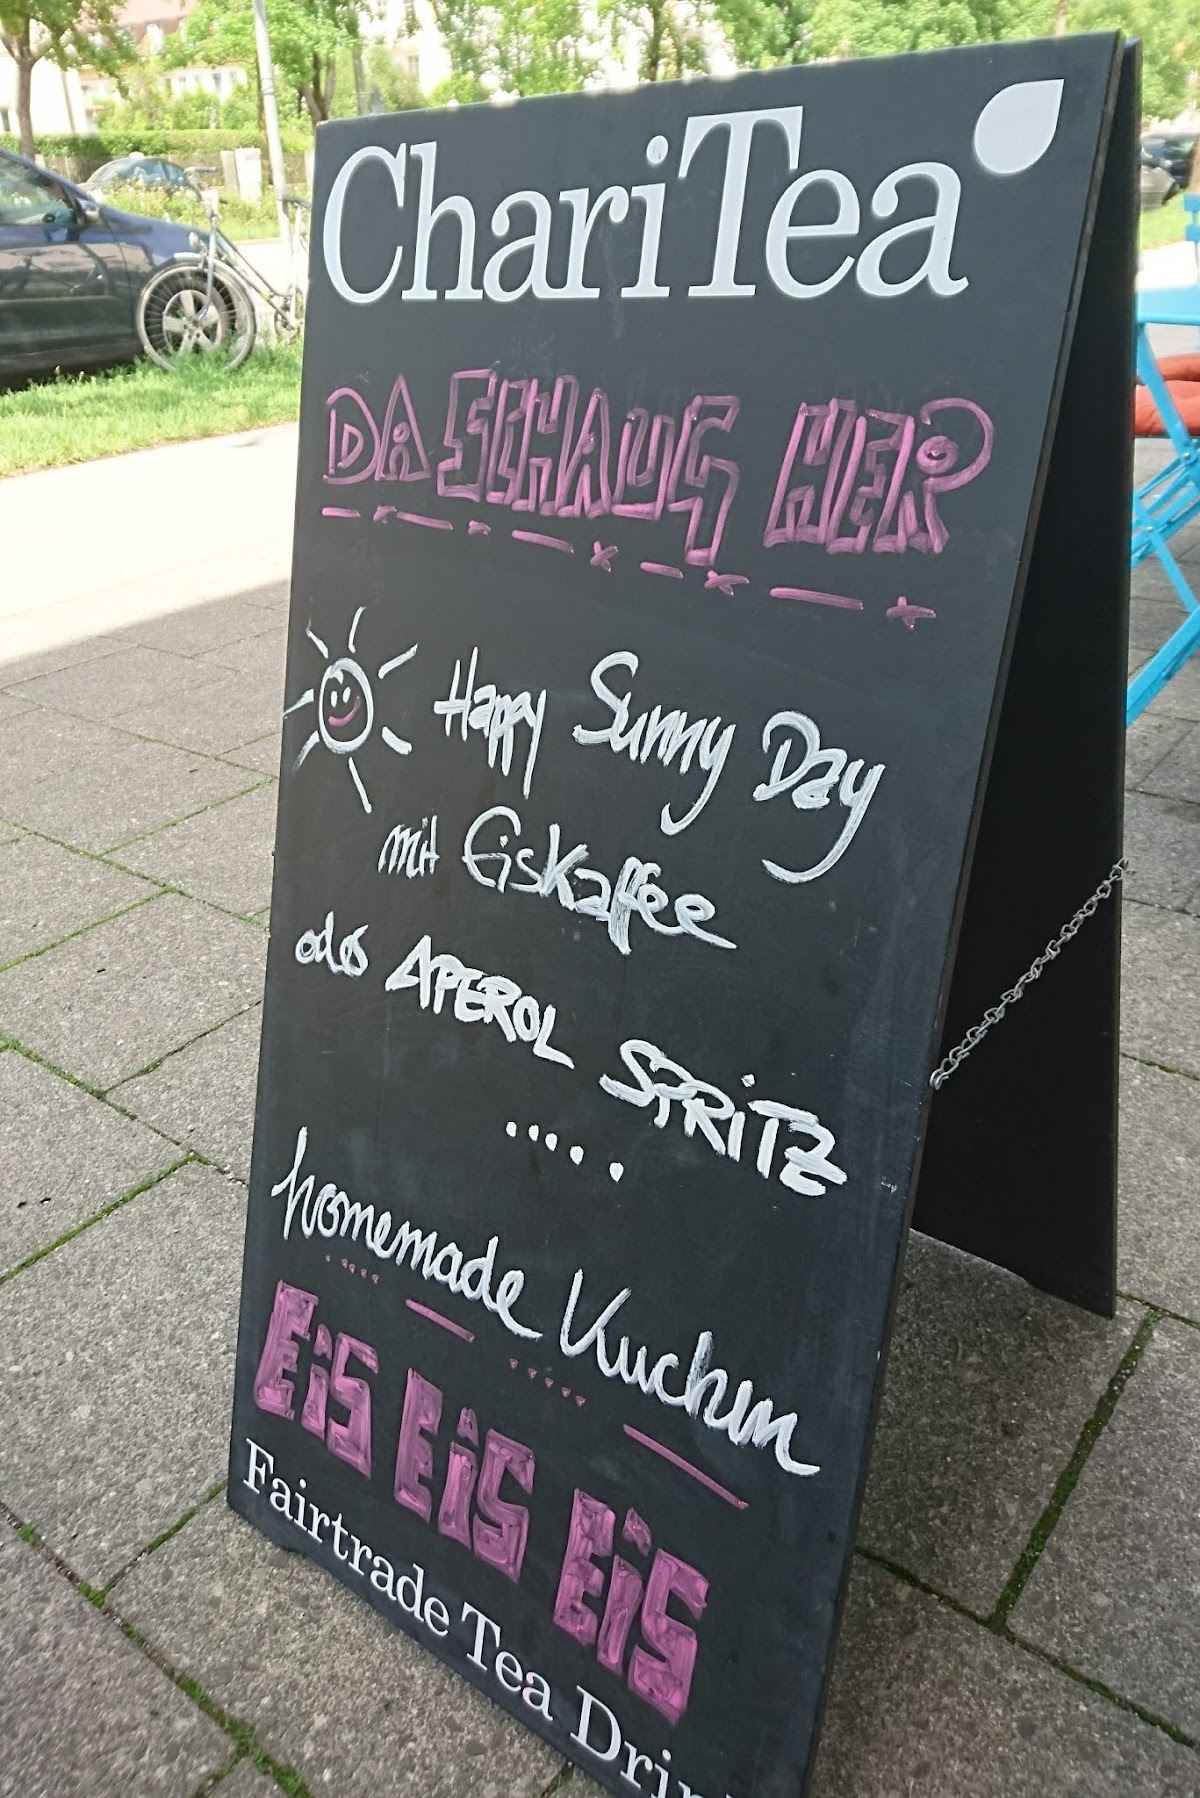 ChariTea
DA SCHAUG HER
Happy Sunny Day
mit Eiskaffee
oder APEROL SPRiTZ
.....
homemade Kuchen
EiS EiS EiS
Fairtrade Tea Drin